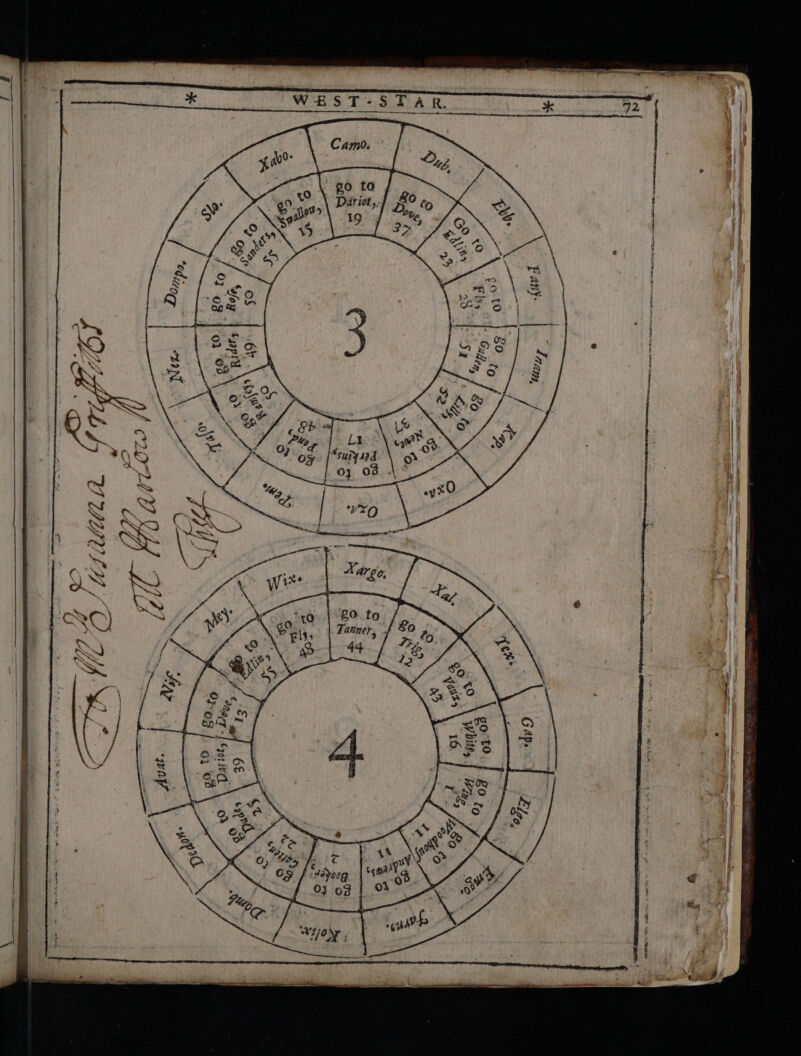 * WEST-STAR. * 72
Camo.
go to
Dariot,
19
Dub.
go to
Dove,
37
Ebb.
Go to
Edlin,
23
Fany.
go to
Fly,
28
Inam.
go to
Gallen,
51
Kap.
go to
Lilly,
52
Oxa.
go to
Neve,
37
Oza.
go to
Perkins,
17
Pem.
go to
Pond,
48
go to
Ramsey,
50
Nez.
go to
Rider,
49
Dompo.
go to
Rose,
50
Slo.
go to
Sanders,
55
Xabo.
go to
Swallow,
15
3
Xargo.
go to
Tanner,
44
Xal.
go to
Trig,
12
Tex.
go to
Vaux,
43
Gap.
go to
White,
16
Elgo.
go to
Wing,
1
Emgo.
go to
Woodhous,
11
go to
Andrews,
11
Rolix.
go to
Booker,
2
Domb.
go to
22
Dedon.
go to
Dade,
25
Avat.
go to
Dariot,
39
Nif.
go to
Dove,
13
Mey.
go to
Edlin,
55
Wix.
go to
Fly,
48
4
To Mrs Susanna Griffitts
att